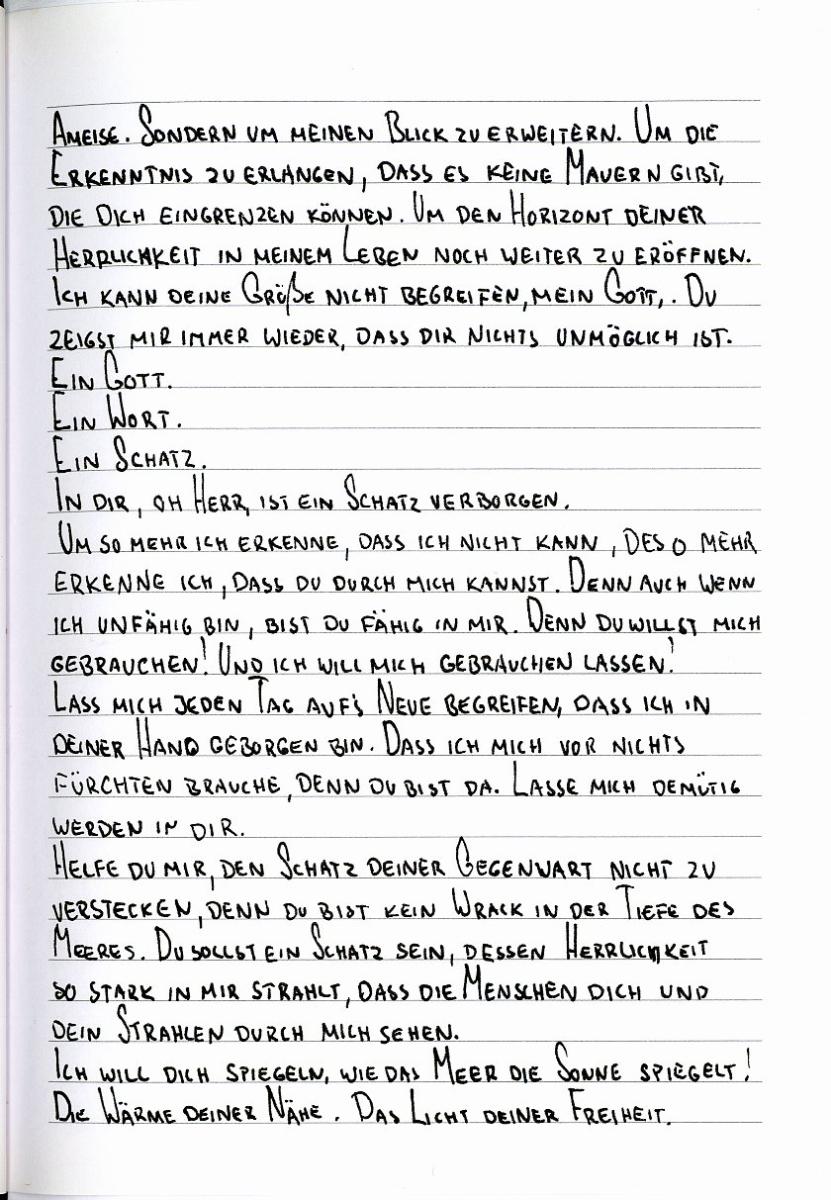 Ameise. Sondern um meinen Blick zu erweitern. Um die
Erkenntnis zu erlangen, dass es keine Mauern gibt,
die dich eingrenzen können. Um den Horizont deiner
Herrlichkeit in meinem Leben noch weiter zu eröffnen.
Ich kann deine Größe nicht begreifen, mein Gott,. Du
zeigst mir immer wieder, dass dir nichts unmöglich ist.
Ein Gott.
Ein Wort.
Ein Schatz.
In dir, oh Herr, ist ein Schatz verborgen.
Um so mehr ich erkenne, dass ich nicht kann, des o mehr
erkenne ich, dass du durch mich kannst. Denn auch wenn
ich unfähig bin, bist du fähig in mir. Denn du willst mich
gebrauchen! Und ich will mich gebrauchen lassen!
Lass mich jeden Tag auf's Neue begreifen, dass ich in
deiner Hand geborgen bin. Dass ich mich vor nichts
fürchten brauche, denn du bist da. Lasse mich demütig
werden in dir.
Helfe du mir, den Schatz deiner Gegenwart nicht zu
verstecken, denn du bist kein Wrack in der Tiefe des
Meeres. Du sollst ein Schatz sein, dessen Herrlichkeit
so stark in mir strahlt, dass die Menschen dich und
dein Strahlen durch mich sehen.
Ich will dich spiegeln, wie das Meer die Sonne spiegelt!
Die Wärme deiner Nähe. Das Licht deiner Freiheit.